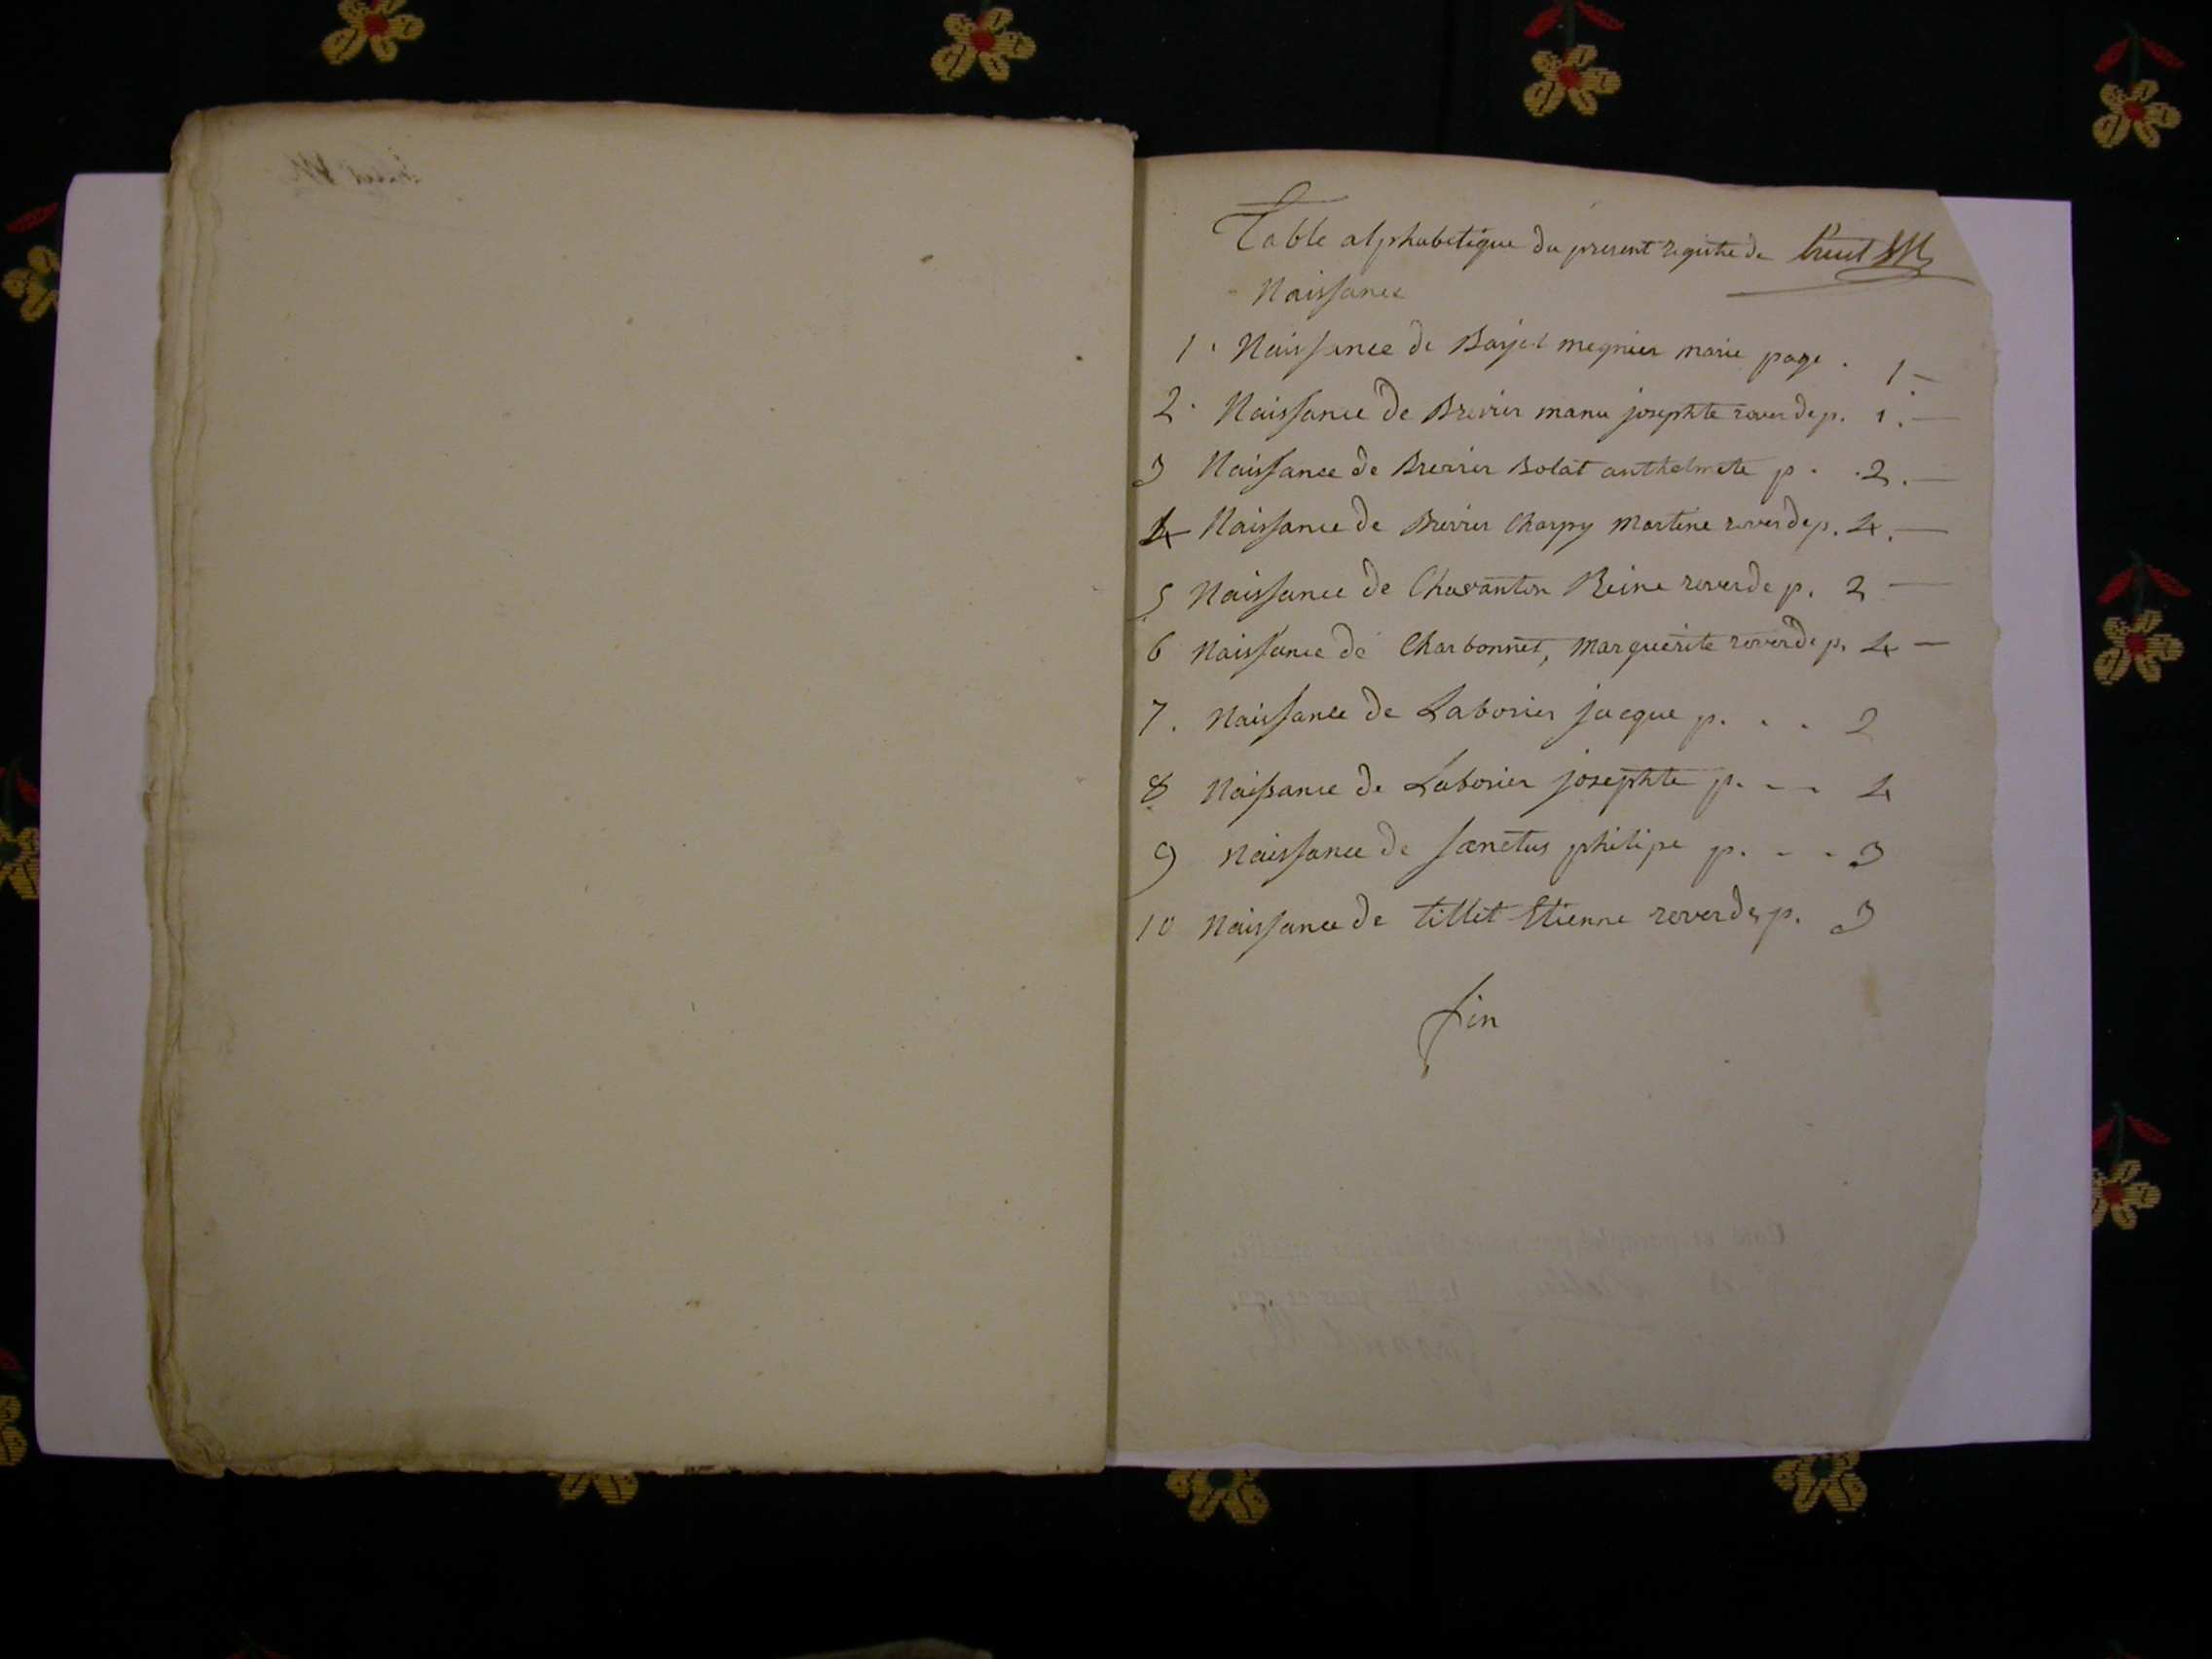 Table alphabetique du present registre de
Naissance
1. Naissance de Bajet megnier marie page. 1
2. Naissance de Brevier marie josephte rever de p. 1.
3 Naissance de Brevier Bolat anthelmete p. .2.
4 Naissance de Brevier Charpy Martine rever de p. 4.
5 Naissance de Chavanton Reine rever de p. 2
6 Naissance de Charbonnet, Marguerite rever de p. 4
7. Naissance de Laborier jacque p. . . 2
8 Naissance de Laborier josephte p. - - 4
9 Naissance de Sanctus philipe p. - - 3
10 Naissance de tillet Etienne rever de p. 3
fin